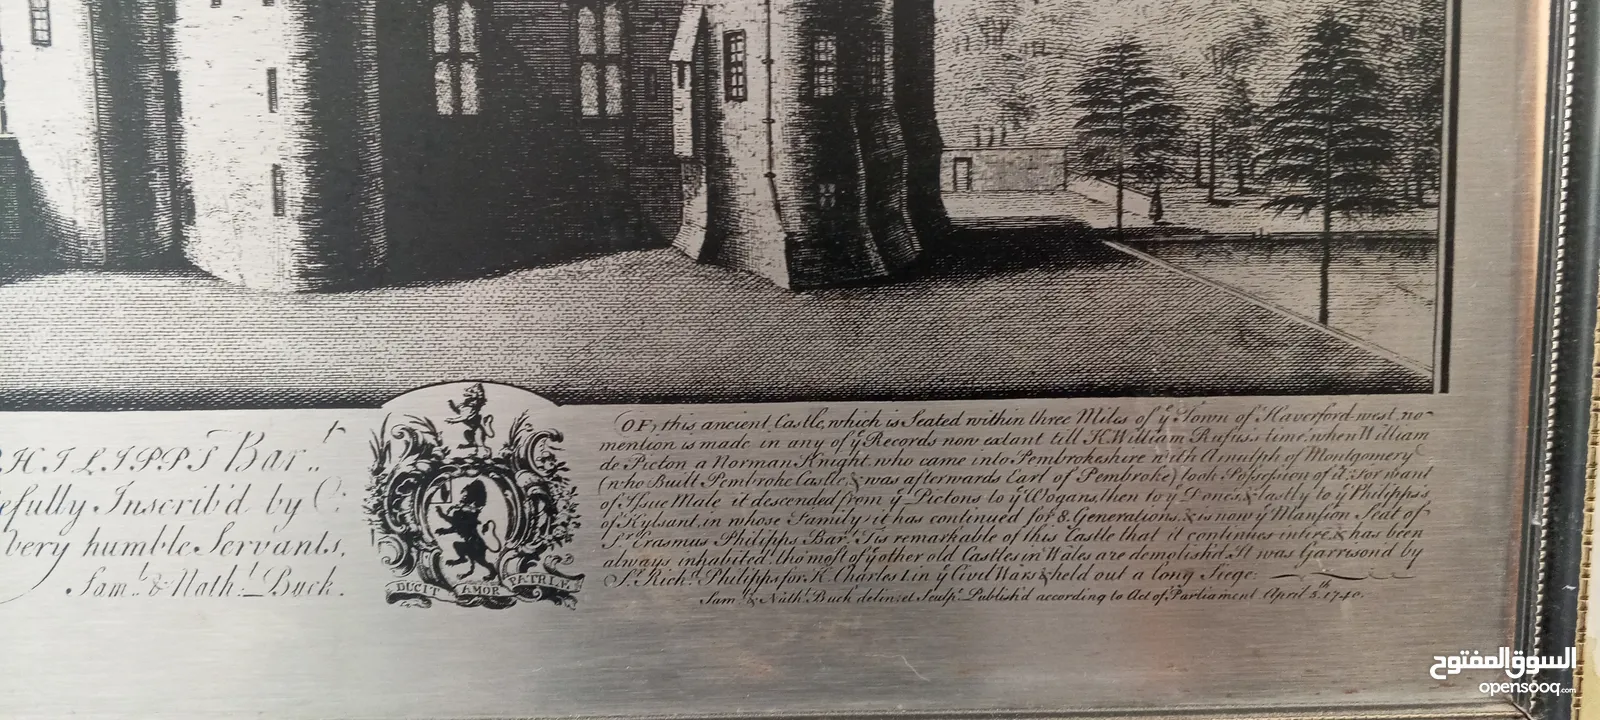 PHILIPPS Bar.t
efully Inscrib'd by C:
very humble Servants,
Sam.l & Nath.l Buck.
DUCIT AMOR PATRIÆ
OF this ancient Castle, which is Seated within three Miles of y.e Town of Haverford-west, no
mention is made in any of y.e Records now extant till K. William Rufus's time, when William
de Picton a Norman Knight, who came into Pembrokeshire with Arnulph of Montgomery
(who Built Pembroke Castle, & was afterwards Earl of Pembroke) took Possession of it: For want
of Issue Male it descended from y.e Pictons to y.e Wogans, then to y.e Dones, & lastly to y.e Philipps's
of Kylsant, in whose Family it has continued for 8 Generations, & is now y.e Mansion Seat of
S.r Erasmus Philipps Bar.t T'is remarkable of this Castle that it continues intire, & has been
always inhabited, tho most of y.e other old Castles in Wales are demolish'd. It was Garrison'd by
S.r Rich.d Philipps for K. Charles I. in y.e Civil Wars & held out a long Siege:
Sam.l & Nath.l Buck delin: et Sculp: Publish'd according to Act of Parliament April 5.th 1740.
السوق المفتوح
opensooq.com